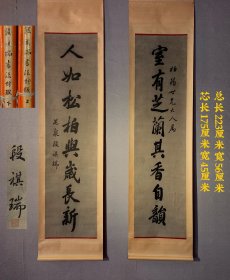 室有芝蘭其香自韻
人如松柏與歲長新
芝泉段祺瑞
段祺瑞
总长223厘米宽56厘米
芯长175厘米宽45厘米